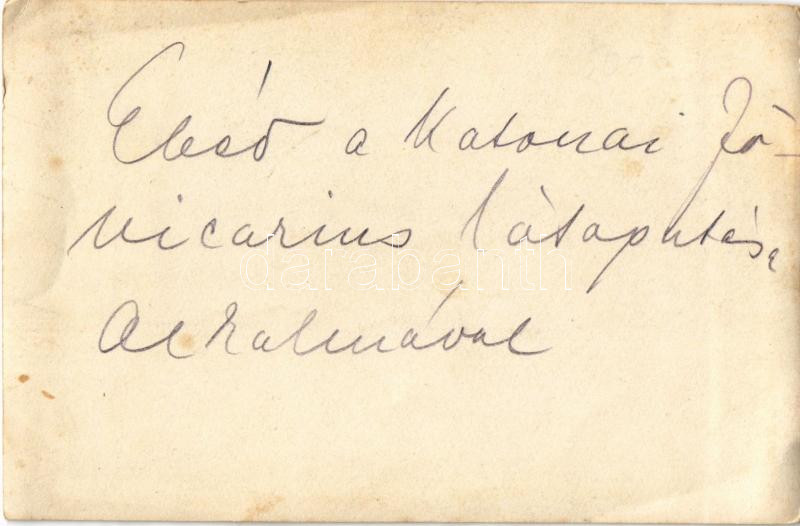 Ebéd a Katonai Fő-
vicarius látogatása
Alkalmával
darabanth